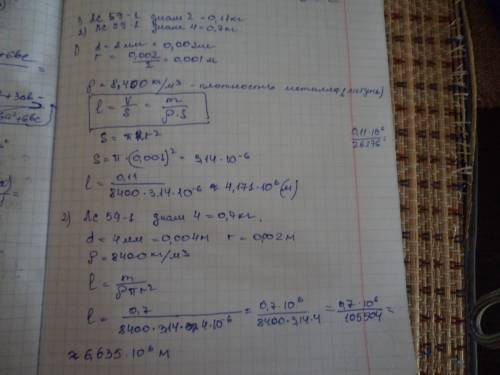 +6bc
+3ab-
6a²+6bc
1) ЛС 59-1 диам 2 = 0,11кг
2) ЛС 59-1 диам 4 = 0,7кг
1) d = 2 мм = 0,002м
r = 0,002/2 = 0,001 м
ρ = 8,400 кг/м3 - плотность металла (латунь)
l = V/S = m/ρ·S
S = πr²
S = π·(0,001)² = 3,14·10⁻⁶
l = 0,11/8400·3,14·10⁻⁶ ≈ 4,171·10⁶ (м)
0,11·10⁶/26376 =
2) ЛС 59-1 диам 4 = 0,7 кг.
d = 4 мм = 0,004м r = 0,002 м
ρ = 8400 кг/м3
l = m/ρπr²
l = 0,7/8400·3,14·4·10⁻⁶ = 0,7·10⁶/8400·3,14·4 = 0,7·10⁶/105504 =
≈ 6,635·10⁶ м